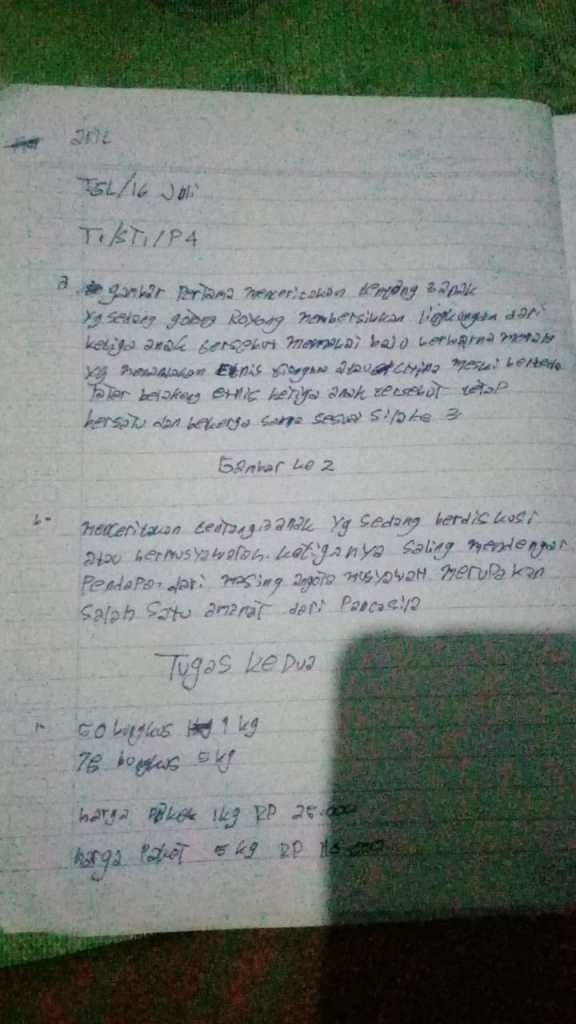 TSL/16 Juli
T1/ST1/P4
a gambar Pertama menceritakan tentang 3 anak
Yg sedang gotong Royong membersihkan lingkungan dari
ketiga anak tersebut memakai baju berwarna merah
yg menawakan Etnis tiongwa atau china meski berbeda
latar belakang etnis ketiga anak tersebut tetap
bersatu dan bekerja sama sesuai sila ke 3
Gambar ke 2
b- menceritakan tentang 3 anak Yg sedang berdiskusi
atau bermusyawarah. ketiganya saling mendengar
Pendapat dari masing angota musyawah merupakan
salah satu amanat dari Pancasila
Tugas kedua
1- 50 bungkus 1 kg
75 bongkos 5 kg
harga paket 1kg RP 25.000
harga Paket 5 kg RP